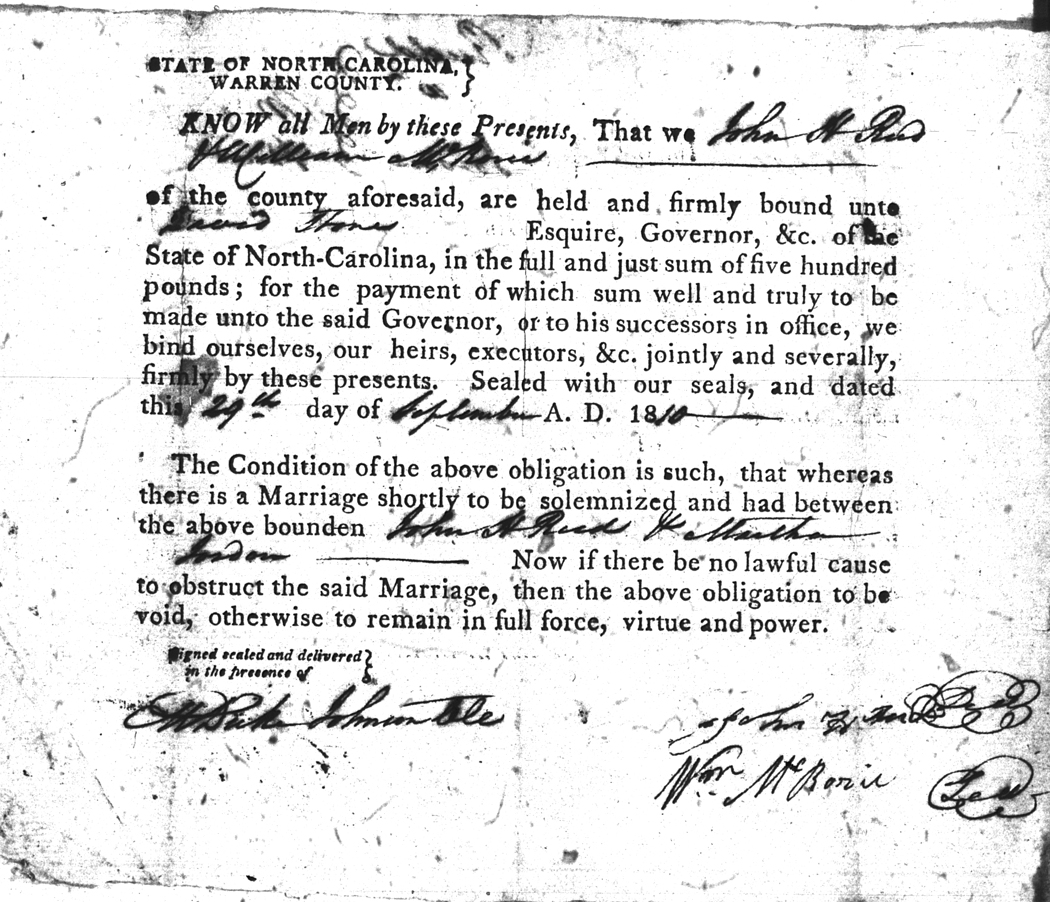 STATE OF NORTH CAROLINA,
WARREN COUNTY.
KNOW all Men by these Presents, That we John H Reed
& William
of the county aforesaid, are held and firmly bound unto
David Stone Esquire, Governor, &c. of the
State of North-Carolina, in the full and just sum of five hundred
pounds; for the payment of which sum well and truly to be
made unto the said Governor, or to his successors in office, we
bind ourselves, our heirs, executors, &c. jointly and severally,
firmly by these presents. Sealed with our seals, and dated
this 29th day of September A. D. 1810
The Condition of the above obligation is such, that whereas
there is a Marriage shortly to be solemnized and had between
the above bounden John H Reed & Martha
Jordon Now if there be no lawful cause
to obstruct the said Marriage, then the above obligation to be
void, otherwise to remain in full force, virtue and power.
Signed sealed and delivered
in the presence of
Johnson
John H Reed Seal
Wm Mc Seal